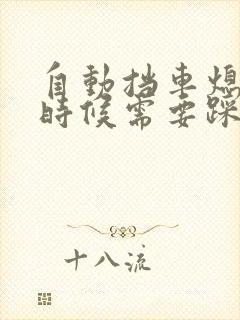 自動挡車熄
時候需要踩
十八流